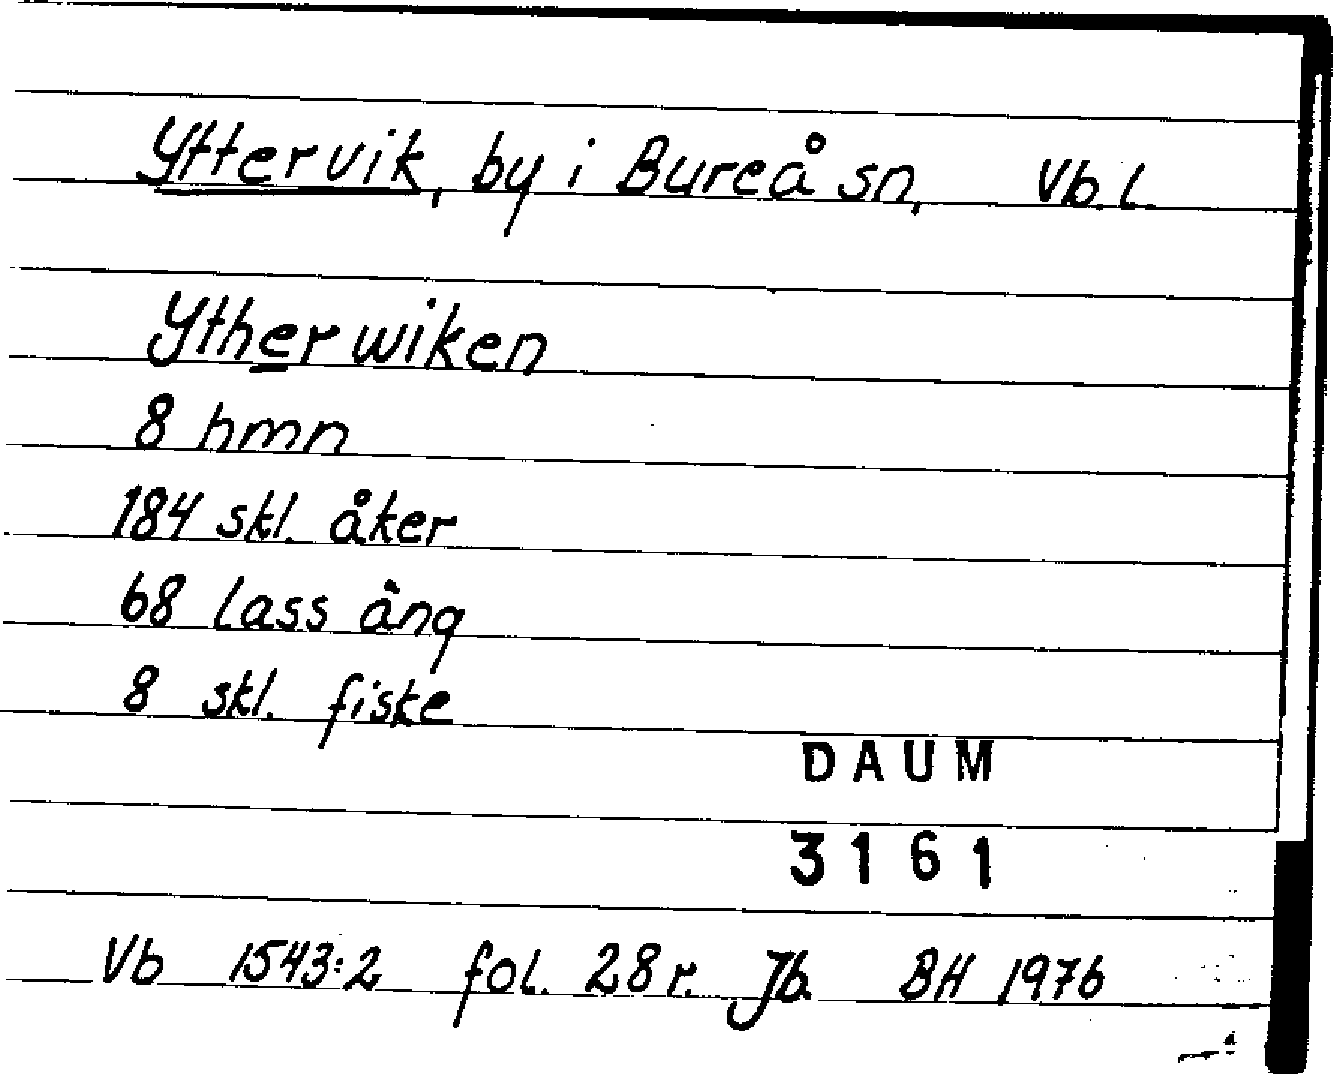 Yttervik, by i Bureå sn, Vb. l.
Ytherwiken
8 hmn
184 skl. åker
68 lass äng
8 skl. fiske
DAUM
3161
Vb 1543:2 fol. 28 r. Jb. BH 1976